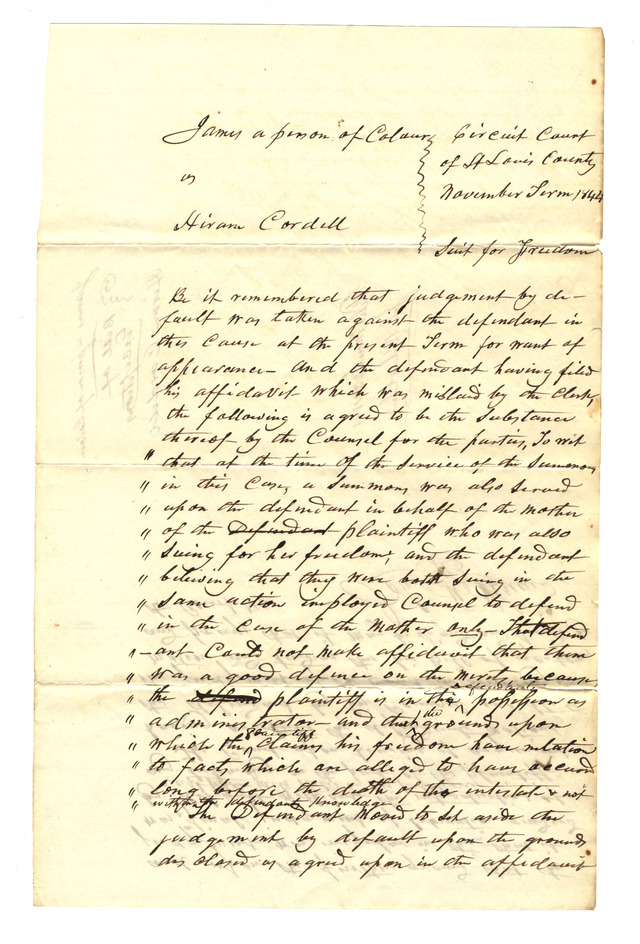 James a person of Colour
vs
Hiram Cordell
Circuit Court
of St Louis County
November Term 1844
Suit for Freedom
Be it remembered that judgement by de-
fault was taken against the defendant in
this Cause at the present Term for want of
appearance - And the defendant having filed
his affidavit which was mislaid by the Clerk,
the following is agreed to be the substance
thereof by the Counsel for the parties, To wit
" that at the time of the service of the Summons
" in this Case, a summons was also served
" upon the defendant in behalf of the mother
" of the Defendant plaintiff who was also
" Suing for her freedom, and the defendant
" beleiving that they were both Suing in the
" same action imployed Counsel to defend
" in the Case of the Mother only - That defend
" -ant Could not make affidavit that there
" was a good defence on the merits, because
" the plaintiff is in possession as
" administrator - and the grounds upon
" which the plaintiff Claims his freedom have relation
" to facts which are alleged to have occurred
" long before the death of the intestate & not
" within the defendants knowledge
The Defendant Moved to set aside the
judgement by default upon the grounds
disclosed as agreed upon in the affidavit